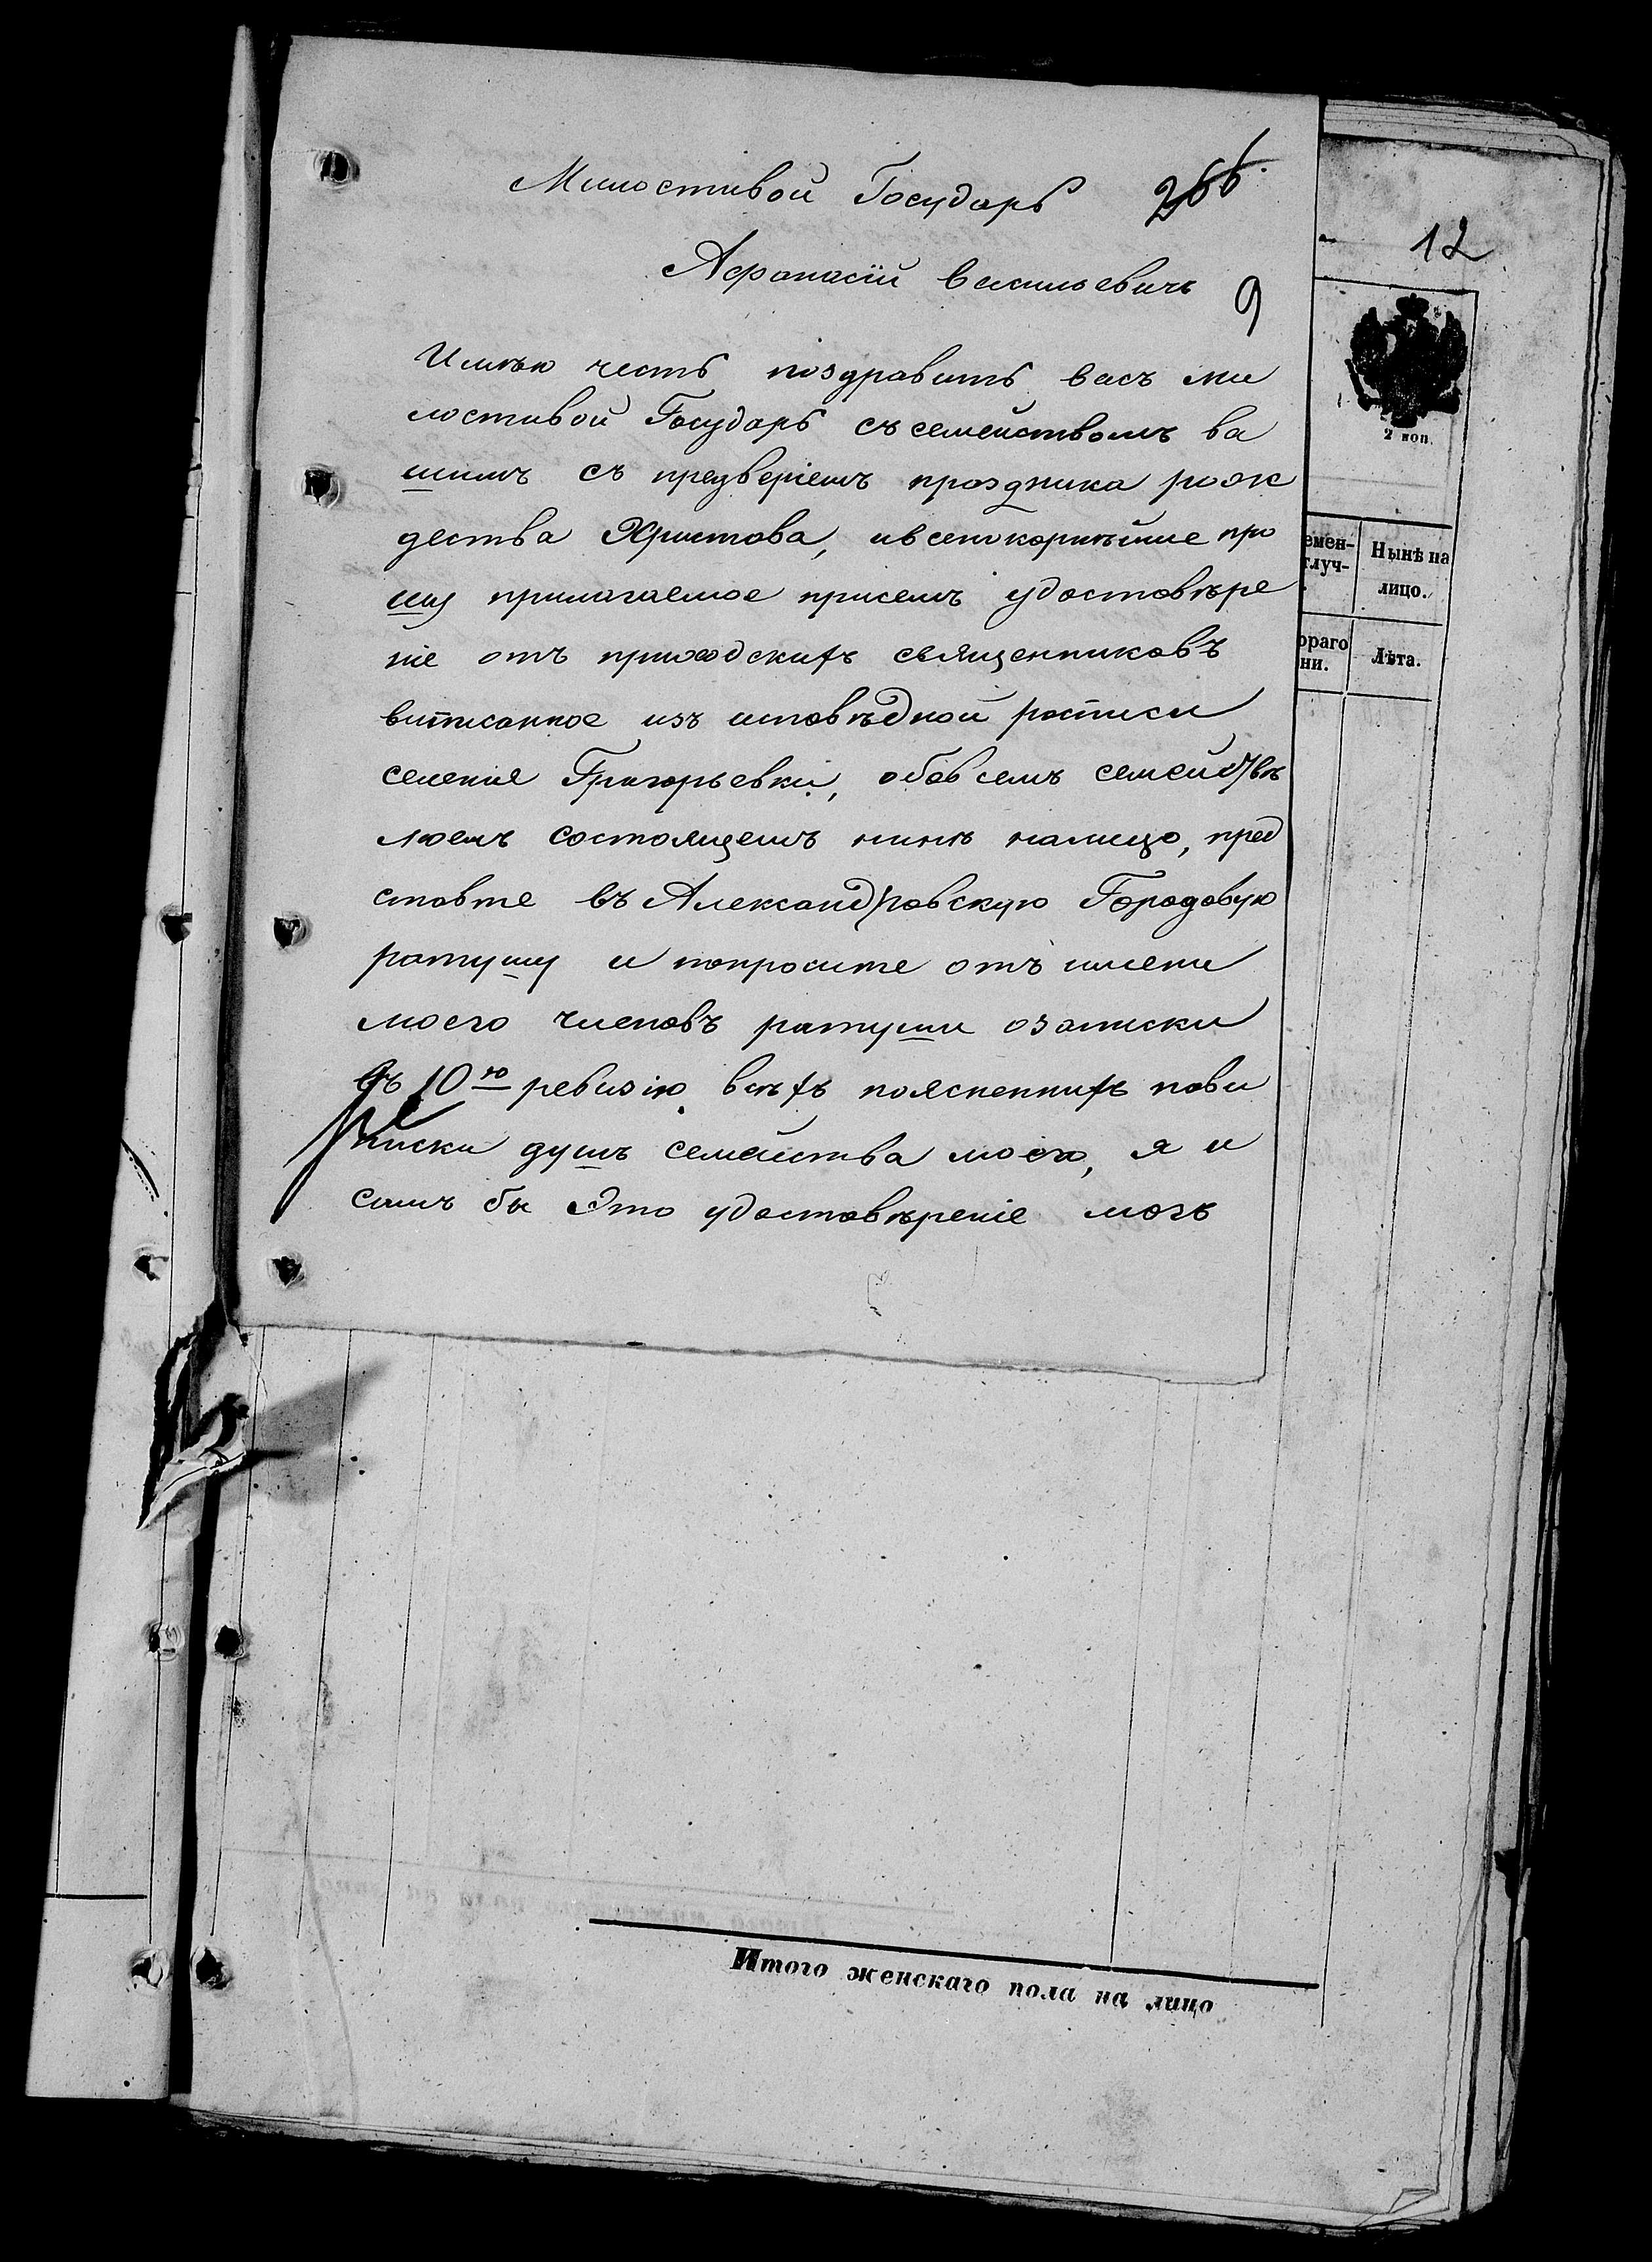 Милостивой Государь
266
12
Афонасій васильевичь
9
2 коп.
Имѣю честь поздравить васъ ми
лостивой Государь съ семействомъ ва
шимъ съ предверіемъ праздника рож
дества Христова, ивсепокорнѣйше про
шу прилагаемое присемъ удостовѣре
ніе отъ приходскихъ священниковъ
виписанное изъ исповѣдной росписи
селенія Григорьевки, обовсемъ семействѣ
моемъ состоящемъ нинѣ налицо, пред
ставте въ Александровскую Городовую
ратушу и попросите отъ имени
моего членовъ ратуши озаписки
въ 10ю ревизію всѣхъ поясненнихъ пови
писки душъ семейства моего, я и
самъ бы Это удостовѣреніе могъ
емен-
глуч-
Нынѣ на
лицо.
ораго
ни.
Лѣта.
Итого женскаго пола на лицо